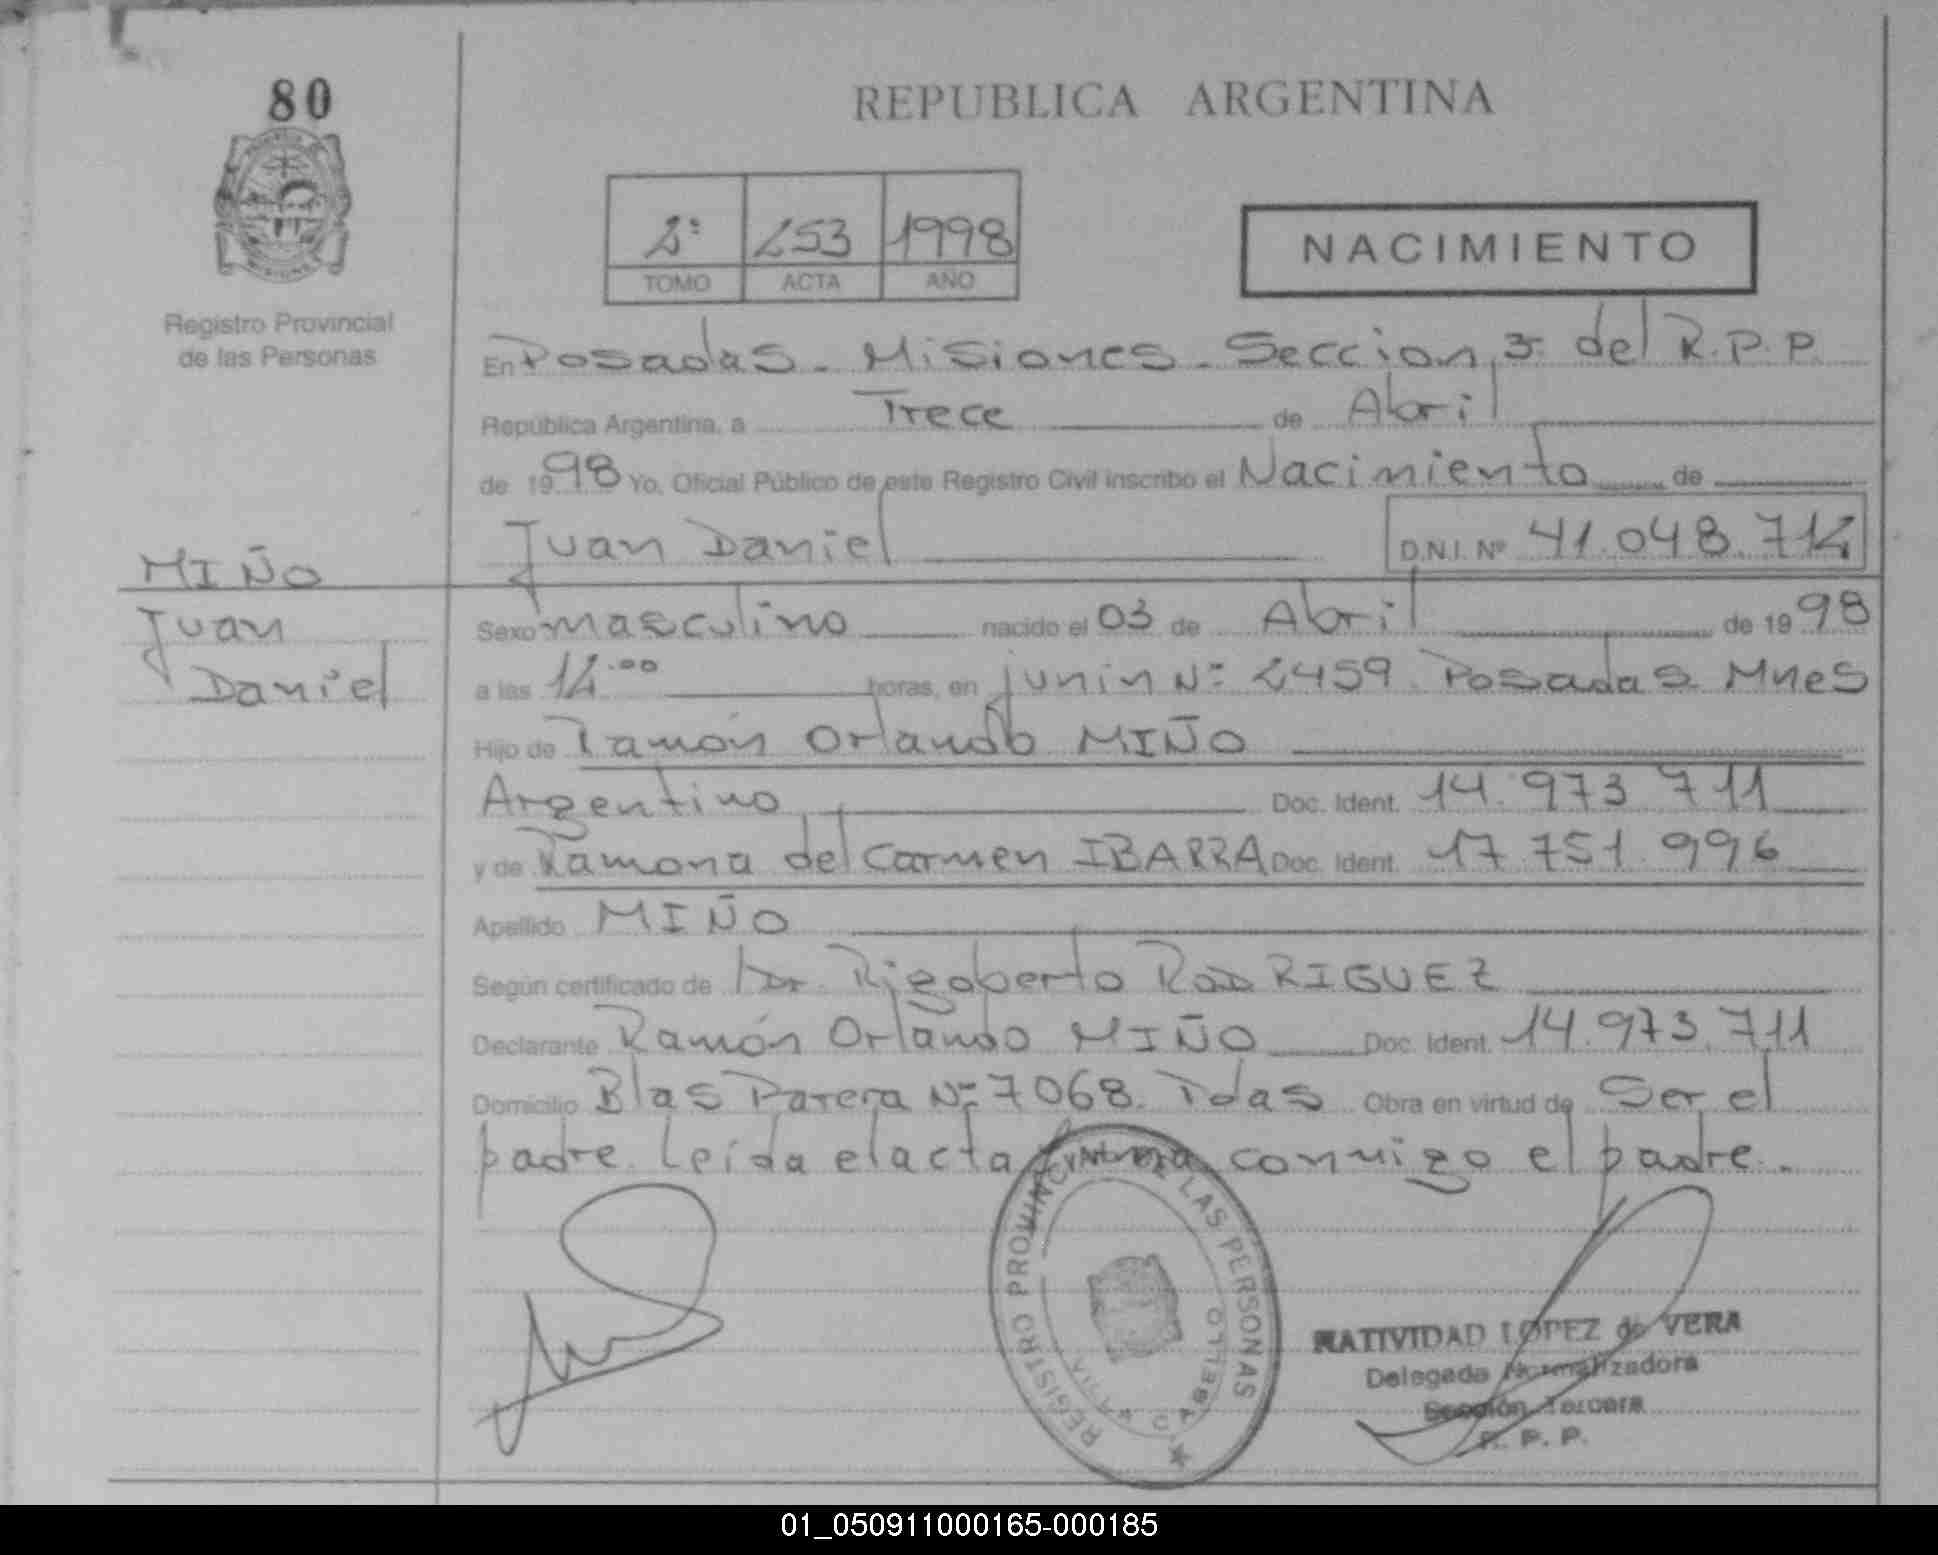 80
REPUBLICA ARGENTINA
2º 253 1998
TOMO ACTA AÑO
NACIMIENTO
Registro Provincial
de las Personas
En Posadas - Misiones - Seccion 3ª del R.P.P.
República Argentina, a Trece de Abril
de 1998 Yo, Oficial Público de este Registro Civil inscribo el Nacimiento de
Juan Daniel D.N.I. Nº 41.048.714
MIÑO
Juan
Daniel
Sexo masculino nacido el 03 de Abril de 1998
a las horas, en junin Nº 2459. Posadas Mnes
Hijo de Ramón Orlando MIÑO
Argentino Doc. Ident. 14.973.711
y de Ramona del Carmen IBARRA Doc. Ident. 17.751.996
Apellido MIÑO
Según certificado de Dr. Rigoberto RODRIGUEZ
Declarante Ramón Orlando MIÑO Doc. Ident. 14.973.711
Domicilio Blas Parera Nº 7068. Pdas Obra en virtud de Ser el
padre. Leída el acta firma conmigo el padre.
REGISTRO PROVINCIAL DE LAS PERSONAS
VILLA CABELLO
NATIVIDAD LOPEZ de VERA
Delegada Normalizadora
Sección Tercera
R. P. P.
01_050911000165-000185